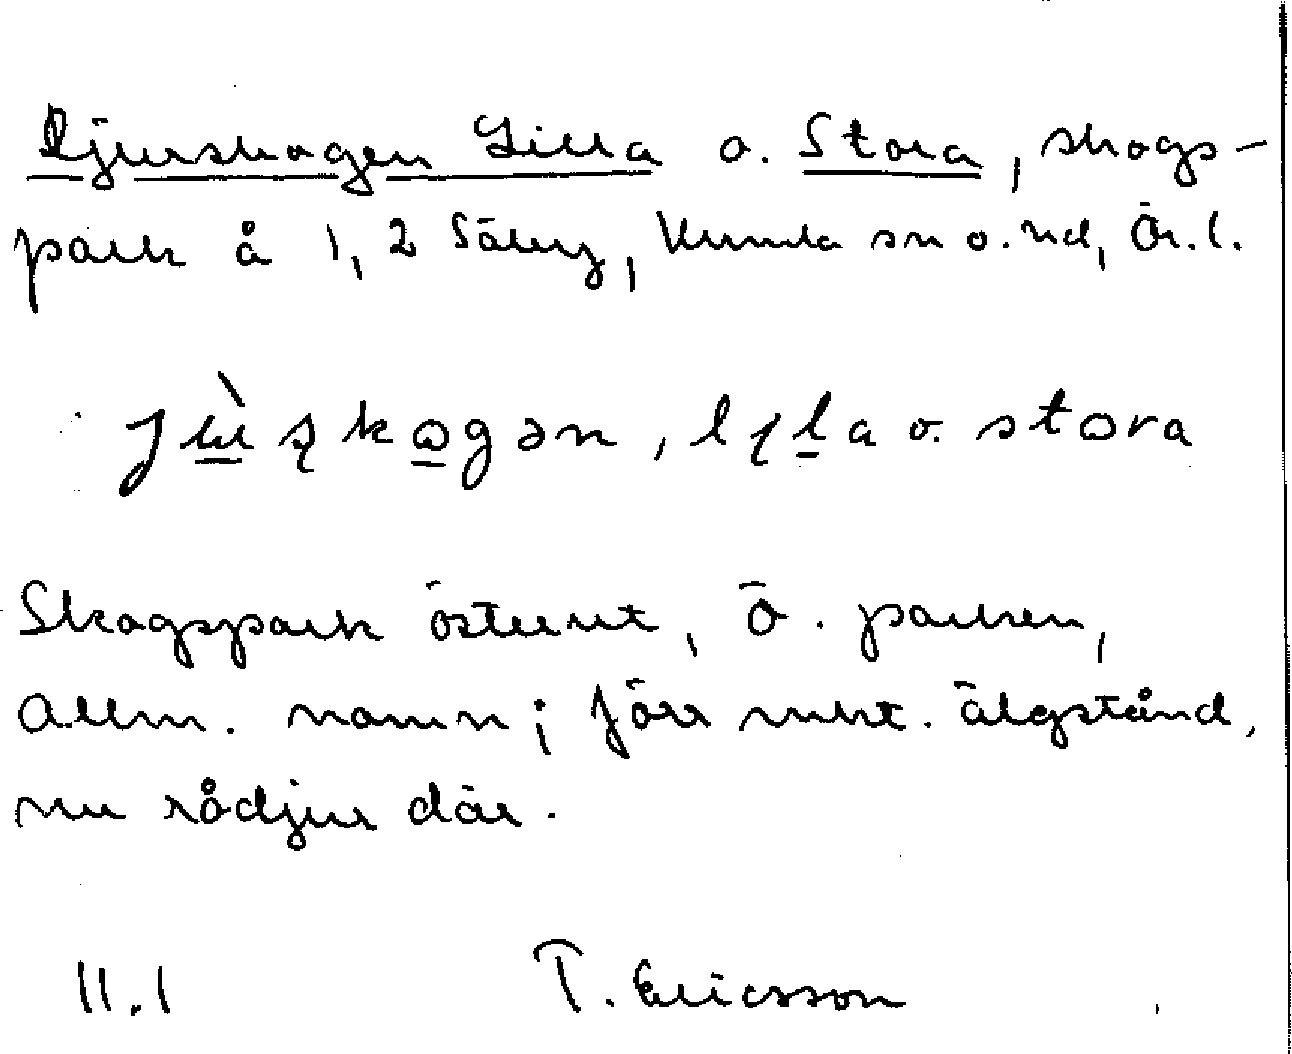 Djurskogen Lilla o. Stora, skogs-
park å 1, 2 Säby, Kumla sn o. hd, Ör. l.
jɯ̀ʂkogən, lɩla o. stora
Skogspark österut, Ö. parken,
allm. namn; förr mkt. älgstånd,
nu rådjur där.
11.1 T. Ericsson